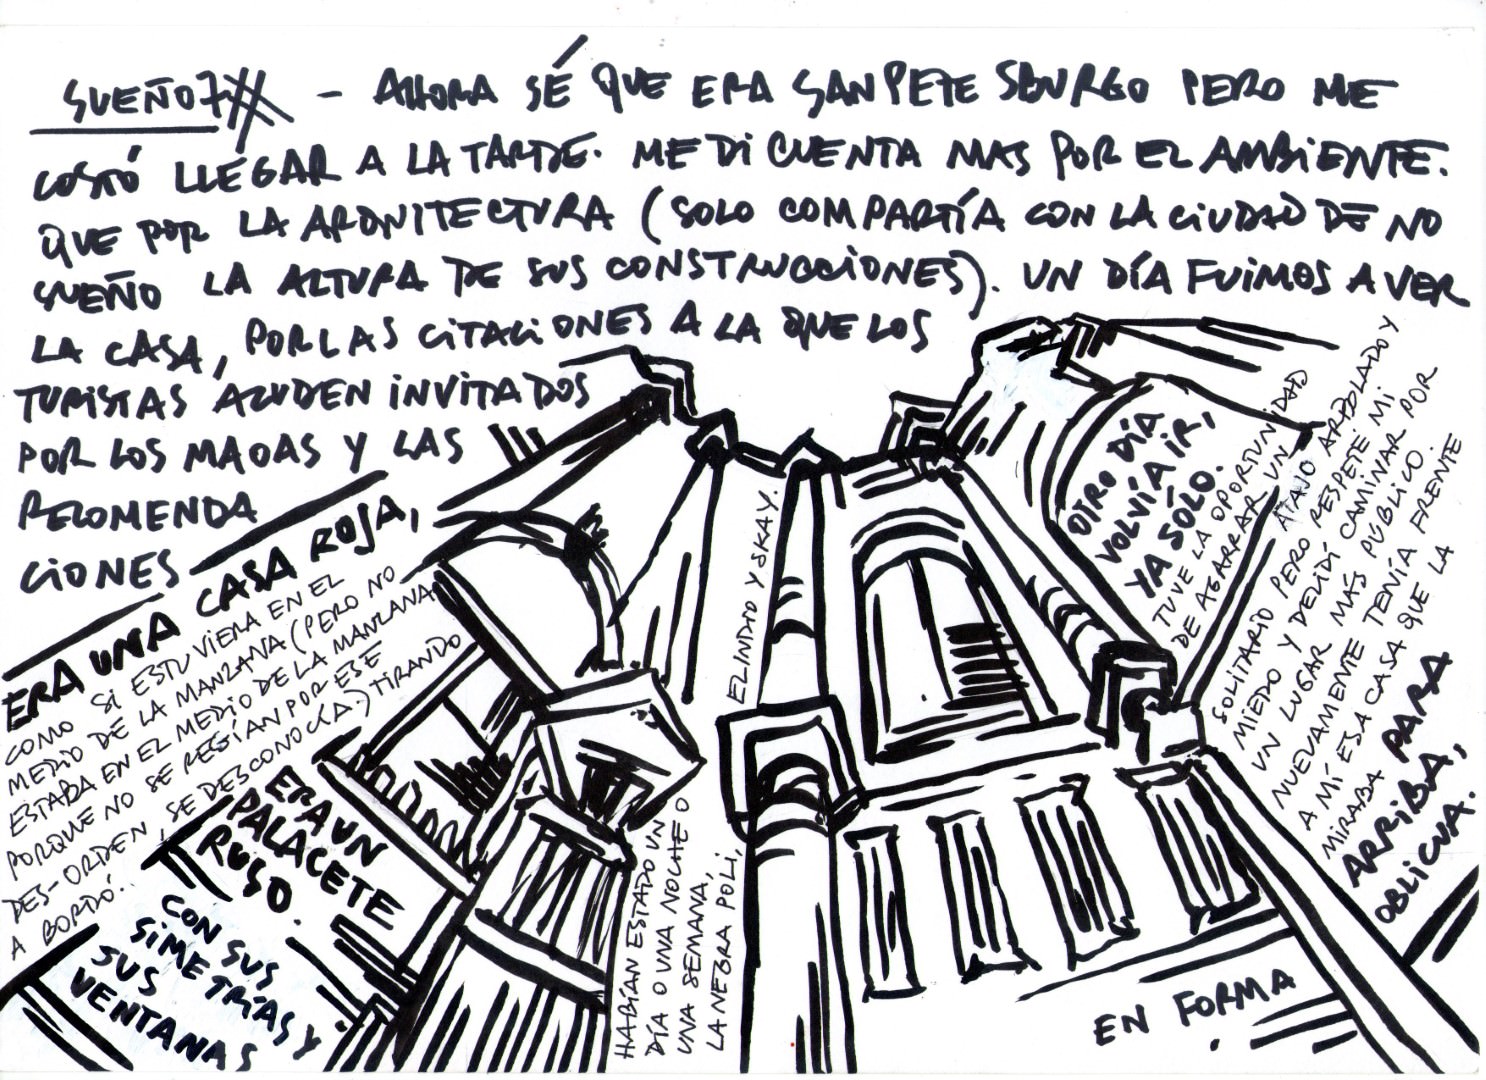 SUEÑO 7 - AHORA SÉ QUE ERA SAN PETESBURGO PERO ME
COSTÓ LLEGAR A LA TARDE. ME DI CUENTA MAS POR EL AMBIENTE.
QUE POR LA ARQUITECTURA (SOLO COMPARTÍA CON LA CIUDAD DE NO
SUEÑO LA ALTURA DE SUS CONSTRUCCIONES). UN DÍA FUIMOS A VER
LA CASA, POR LAS CITACIONES A LA QUE LOS
TURISTAS ACUDEN INVITADOS
POR LOS MAPAS Y LAS
RECOMENDA
CIONES
ERA UNA CASA ROSA,
COMO SI ESTUVIERA EN EL
MEDIO DE LA MANZANA (PERO NO
ESTABA EN EL MEDIO DE LA MANZANA
PORQUE NO SE REGÍAN POR ESE
DES-ORDEN, SE DESCONOCÍA.) TIRANDO
A BORDÓ..
ERA UN
PALACETE
RUSO.
CON SUS
SIMETRÍAS Y
SUS
VENTANAS
HABÍAN ESTADO UN
DÍA O UNA NOCHE O
UNA SEMANA,
LA NEGRA POLI,
EL INDIO Y SKAY.
OTRO DÍA
VOLVÍA IR,
YA SÓLO.
TUVE LA OPORTUNIDAD
DE AGARRAR UN
ATAJO ARBOLADO Y
SOLITARIO PERO RESPETE MI
MIEDO Y DECIDÍ CAMINAR POR
UN LUGAR MÁS PÚBLICO.
NUEVAMENTE TENÍA FRENTE
A MÍ ESA CASA QUE LA
MIRABA PARA
ARRIBA,
OBLICUA.
EN FORMA